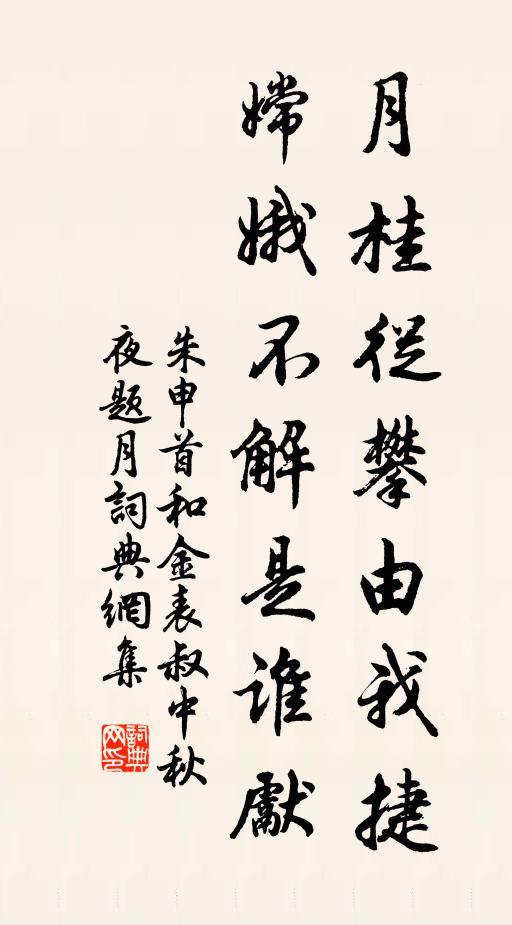 月桂從攀由我捷
嫦娥不解是谁獻
朱申首和金表叔中秋
夜题月詞典網集
詞典
网印